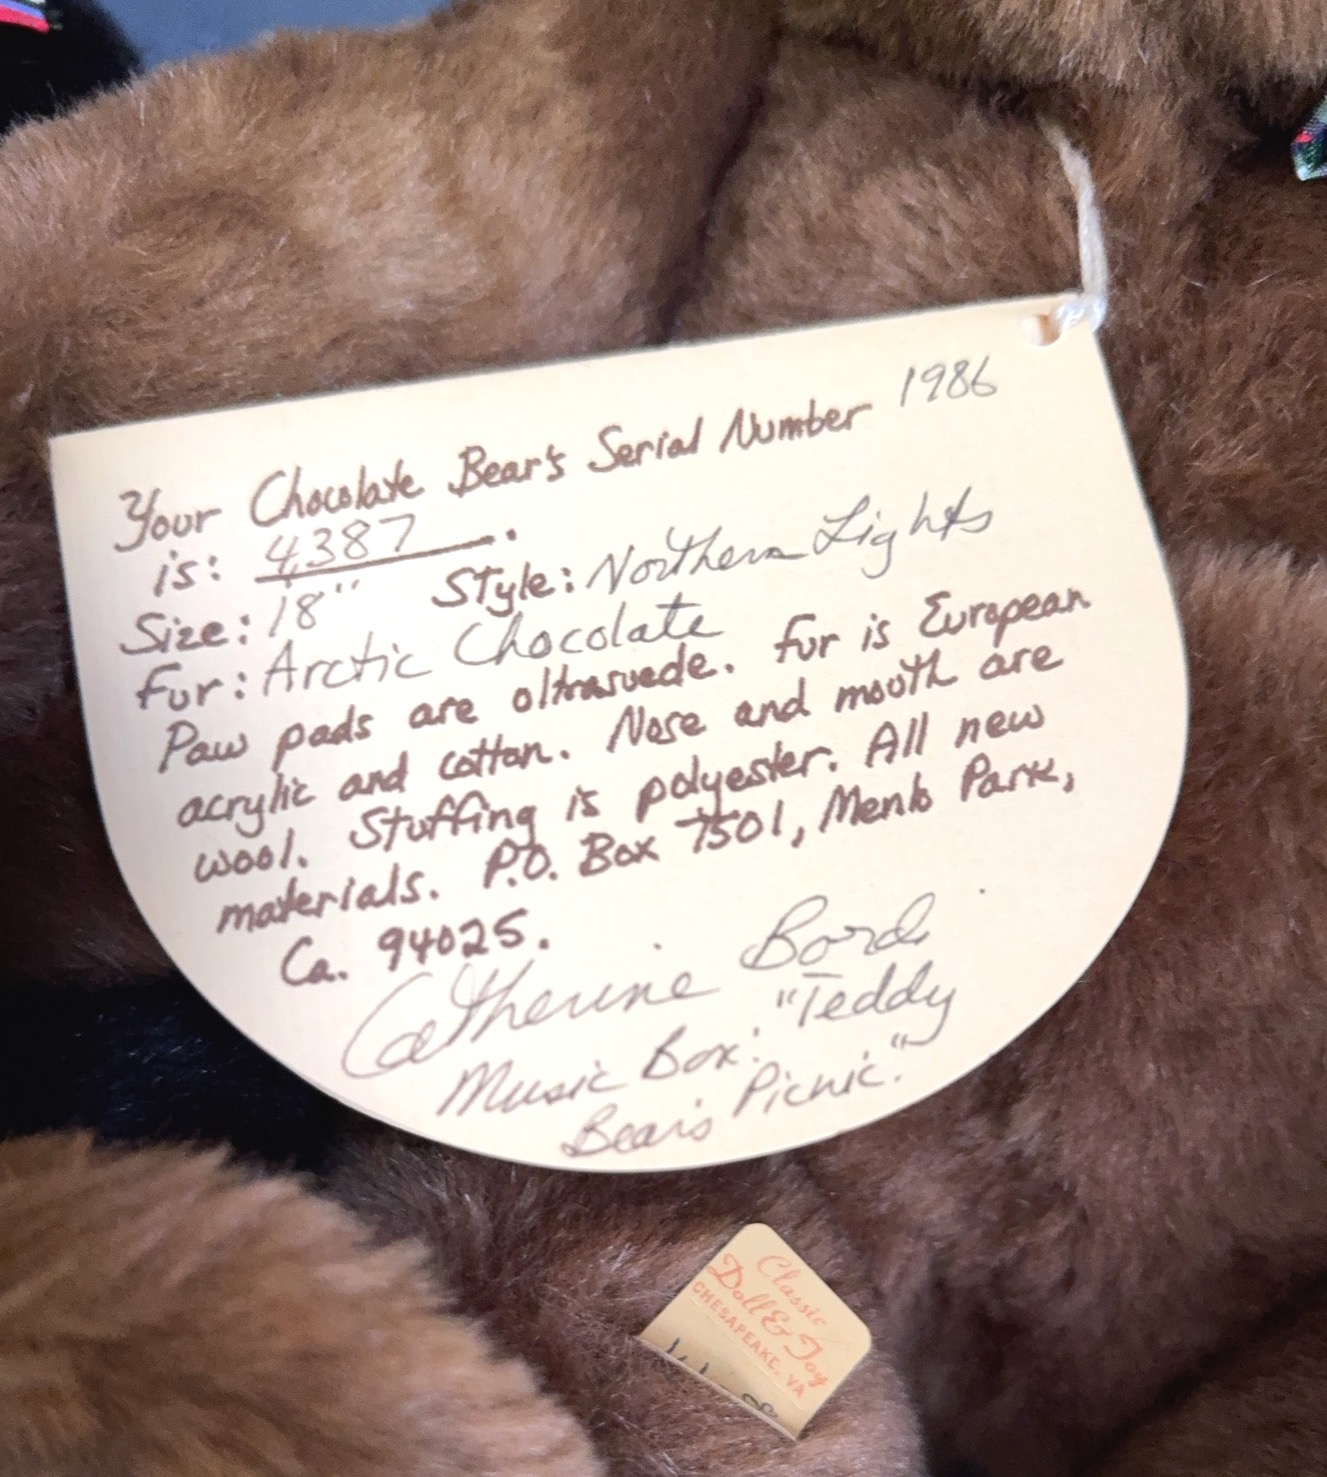 Your Chocolate Bear's Serial Number 1986
is: 4387.
Size: 18" Style: Northern Lights
Fur: Arctic Chocolate
Paw pads are ultrasuede. Fur is European
acrylic and cotton. Nose and mouth are
wool. Stuffing is polyester. All new
materials. P.O. Box 7501, Menlo Park,
Ca. 94025.
Catherine Bordi
Music Box: "Teddy
Bears Picnic."
Classic
Doll & Toy
CHESAPEAKE, VA